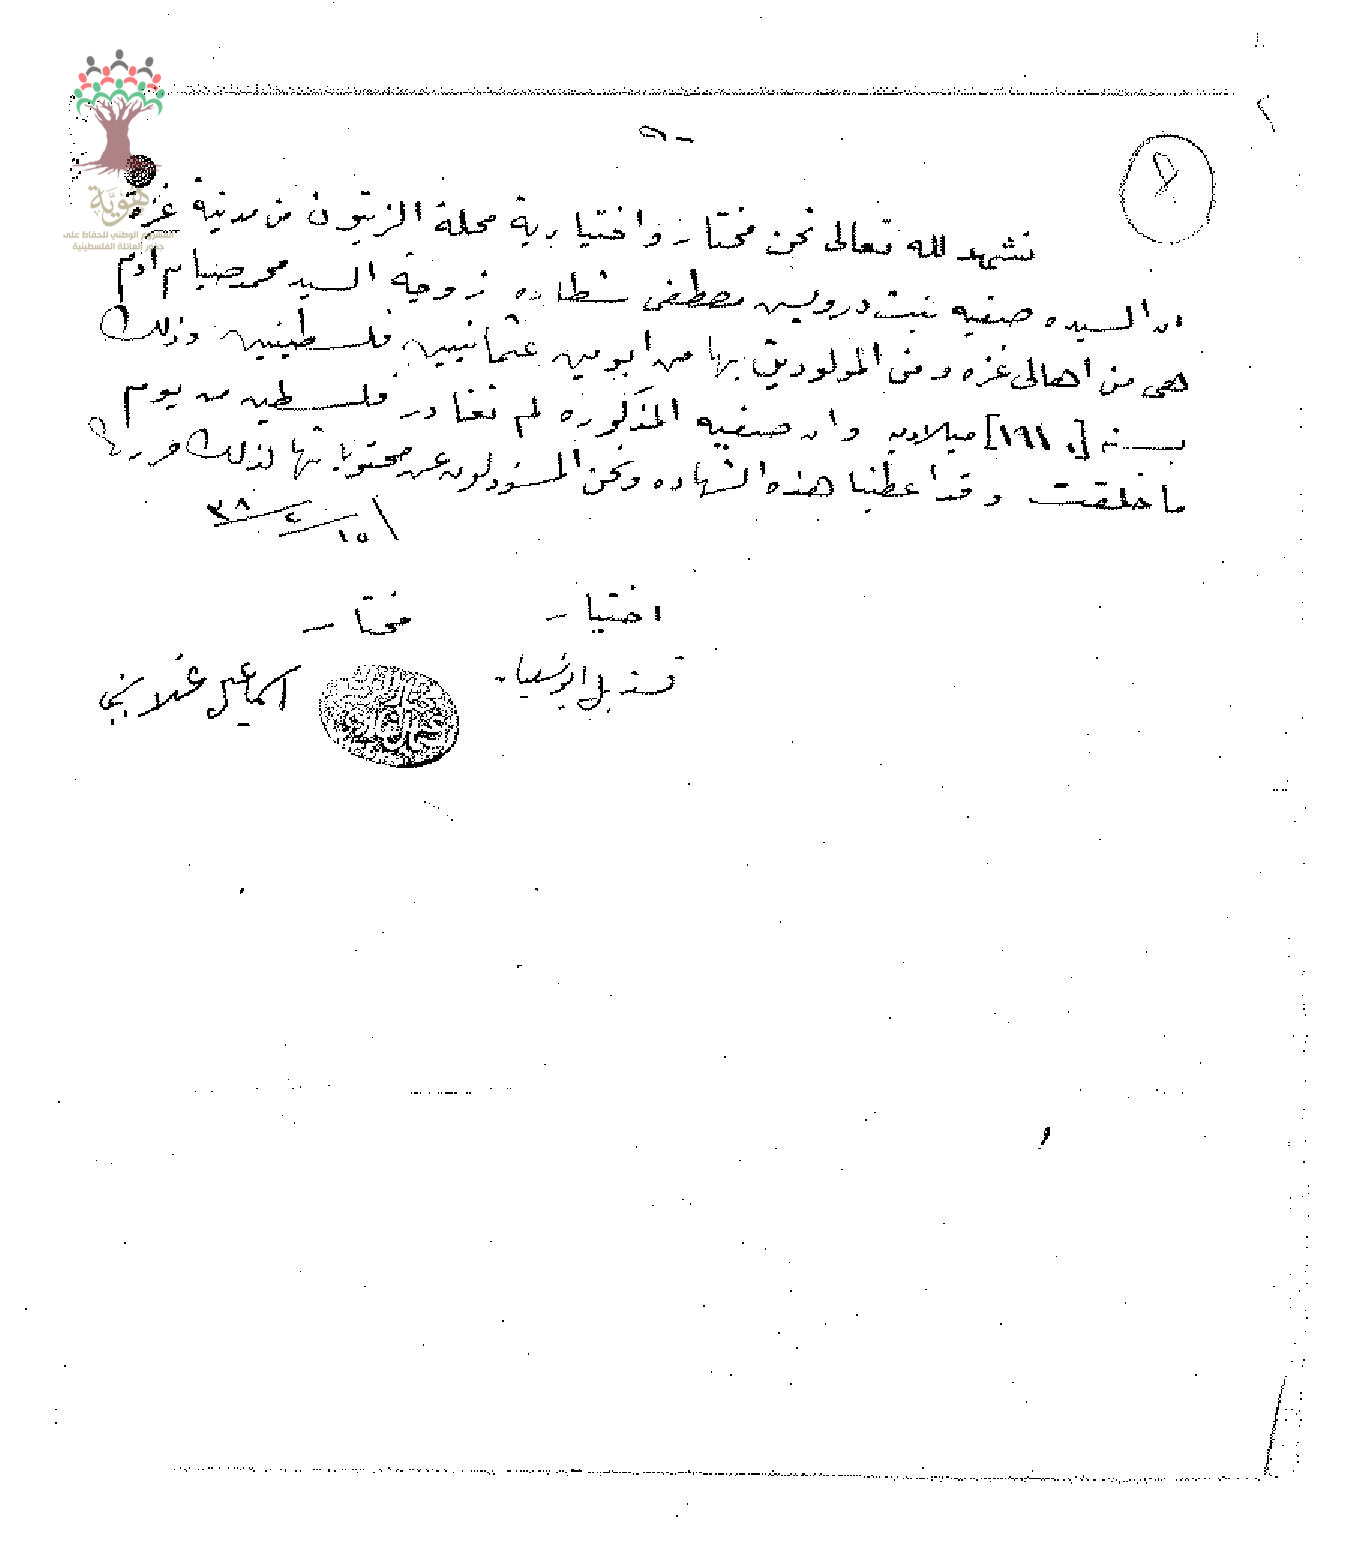 هوية
المشروع الوطني للحفاظ على
جذور العائلة الفلسطينية
نشهد لله تعالى نحن مختار واختيارية محلة الزيتون من مدينة غزة
ان السيده صفيه بنت درويش مصطفى شطاره زوجة السيد محمد صيام ادم
هي من اهالي غزه ومن المولودين بها من ابوين عثمانيين فلسطينيين وذلك
بسنه [١٩١٠] ميلاديه وان صفيه المذكوره لم تغادر فلسطين من يوم
ما خلقت وقد اعطينا هذه الشهاده ونحن المسؤولون عن محتوياتها لذلك حرر
١٥/٢/٣٨
اختيار مختار
اسماعيل